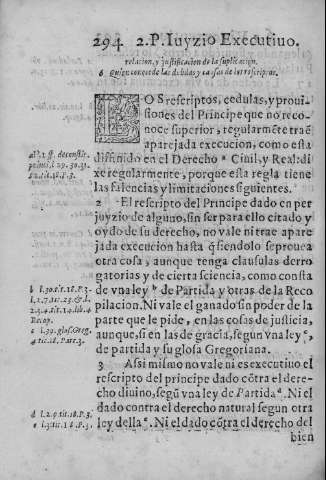 294 2.P. Iuyzio Executiuo.
relacion, y justificacion de la suplicacion.
6 Quien conoce de las dudas y causas de los rescriptos.
LOS rescriptos, cedulas, y proui-
siones del Principe que no reco-
noce superior, regularmẽte traẽ
aparejada execucion, como esta
difinido en el Derecho ᵃ Ciuil, y Real: di
xe regularmente, porque esta regla tiene
las falencias y limitaciones siguientes.
2 El rescripto del Principe dado en per
juyzio de alguno, sin ser para ello citado y
oydo de su derecho, no vale ni trae apare
jada execucion hasta q̃ siendolo se prouea
otra cosa, aunque tenga clausulas derro
gatorias y de cierta sciencia, como consta
de vna ley ᵇ de Partida y otras de la Reco
pilacion. Ni vale el ganado sin poder de la
parte que le pide, en las cosas de justicia,
aunque, si en las de gracia, segun vna ley ᶜ,
de partida y su glosa Gregoriana.
3 Assi mismo no vale ni es executiuo el
rescripto del principe dado cõtra el dere-
cho diuino, segũ vna ley de Partida ᵈ. Ni el
dado contra el derecho natural segun otra
ley della ᵉ. Ni el dado cõtra el derecho del
bien
b l.30.tit.18.P.3.
Recop.
c l.39. glos. Greg.
4 tit.18. Part.3.